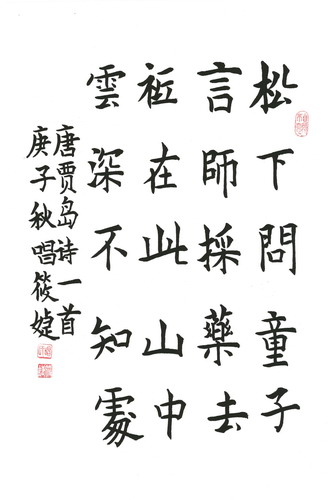 松下問童子
言師採藥去
祗在此山中
雲深不知處
唐贾岛诗一首
庚子秋唱筱婕